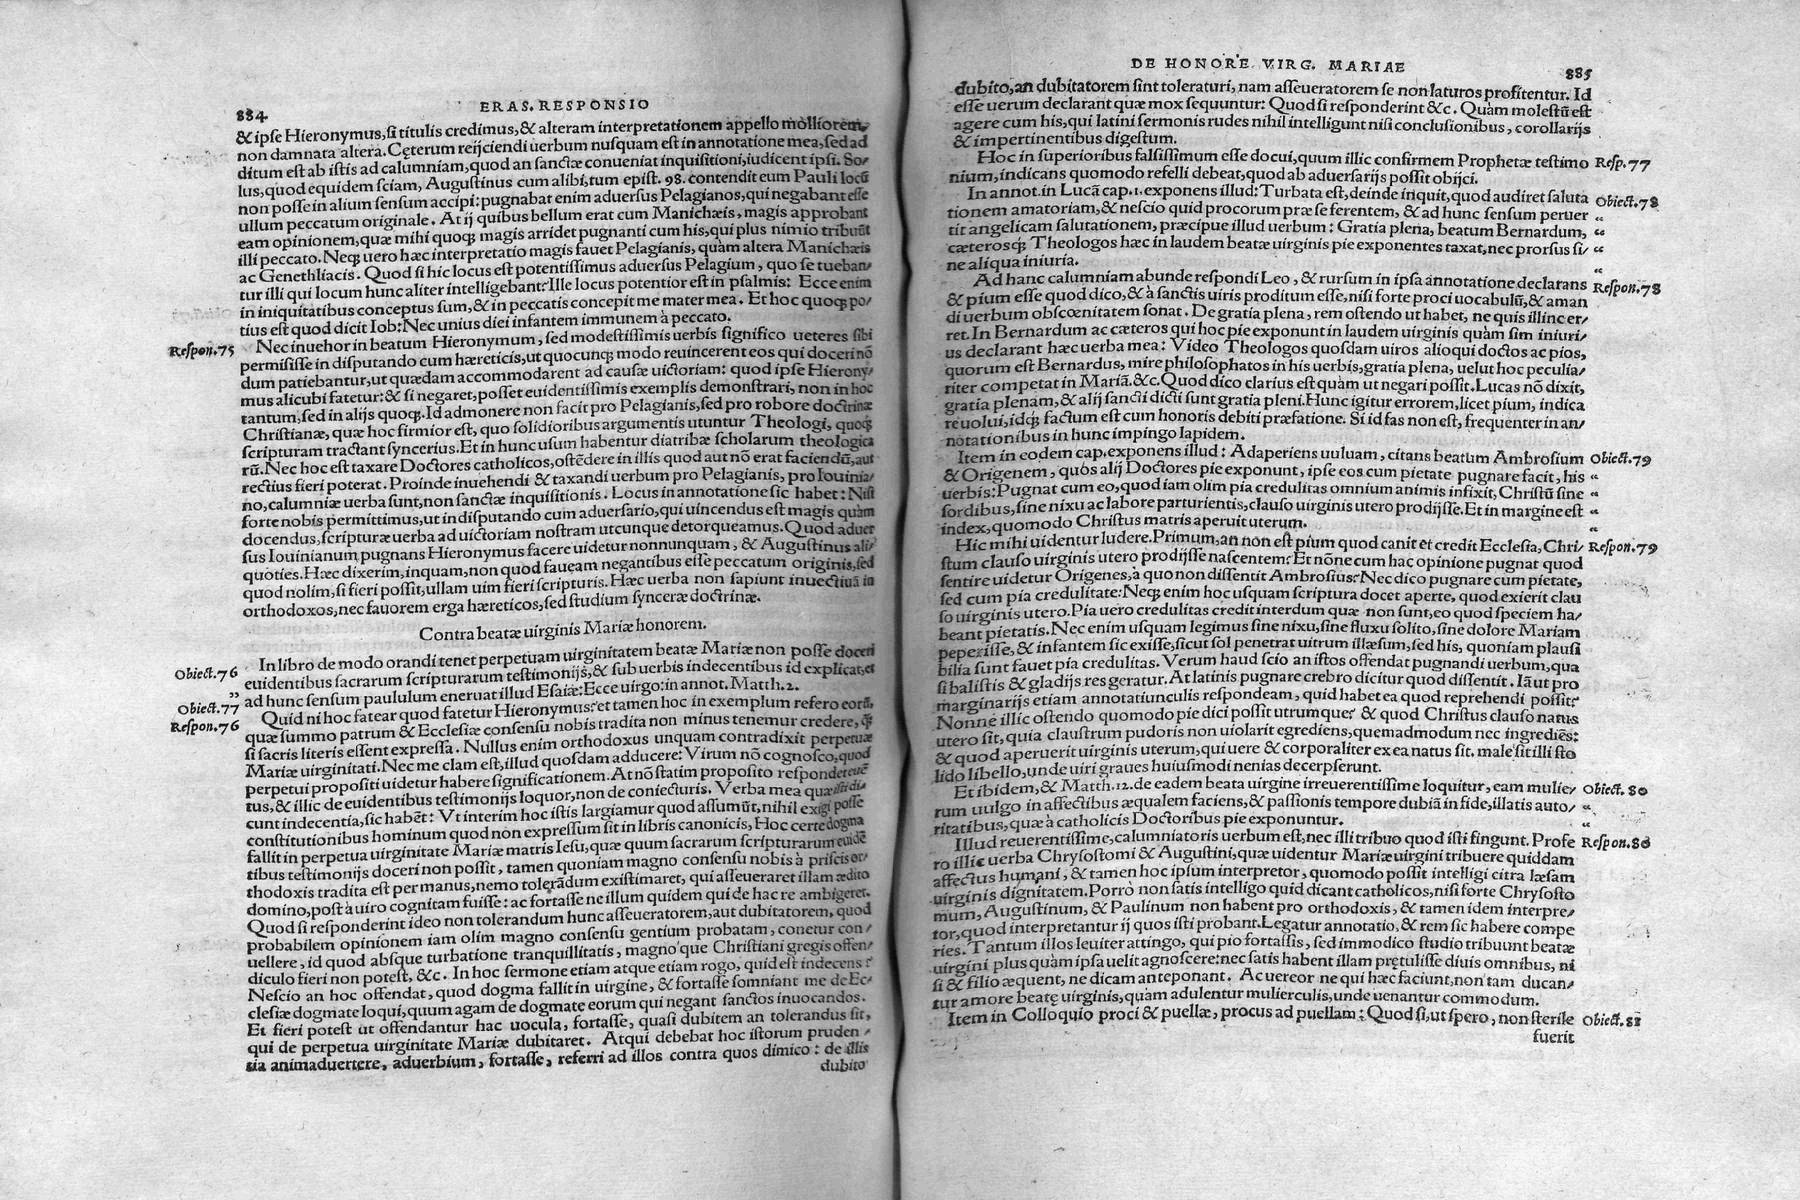 884 ERAS. RESPONSIO
& ipse Hieronymus, si titulis credimus, & alteram interpretationem appello molliorem,
non damnata altera. Cęterum reijciendi uerbum nusquam est in annotatione mea, sed ad
ditum est ab istis ad calumniam, quod an sanctæ conueniat inquisitioni, iudicent ipsi. So/
lus, quod equidem sciam, Augustinus cum alibi, tum epist. 98. contendit eum Pauli locũ
non posse in alium sensum accipi: pugnabat enim aduersus Pelagianos, qui negabant esse
ullum peccatum originale. At ij quibus bellum erat cum Manichæis, magis approbant
eam opinionem, quæ mihi quoq; magis arridet pugnanti cum his, qui plus nimio tribuũt
illi peccato. Neq; uero hæc interpretatio magis fauet Pelagianis, quàm altera Manichæis
ac Genethliacis. Quod si hic locus est potentissimus aduersus Pelagium, quo se tueban/
tur illi qui locum hunc aliter intelligebant? Ille locus potentior est in psalmis: Ecce enim
in iniquitatibus conceptus sum, & in peccatis concepit me mater mea. Et hoc quoq; po/
tius est quod dicit Iob: Nec unius diei infantem immunem à peccato.
Respon. 75 Nec inuehor in beatum Hieronymum, sed modestissimis uerbis significo ueteres sibi
permisisse in disputando cum hæreticis, ut quocunq; modo reuincerent eos qui doceri nõ
dum patiebantur, ut quædam accommodarent ad causæ uictoriam: quod ipse Hierony/
mus alicubi fatetur: & si negaret, posset euidentissimis exemplis demonstrari, non in hoc
tantum, sed in alijs quoq;. Id admonere non facit pro Pelagianis, sed pro robore doctrinæ
Christianæ, quæ hoc firmior est, quo solidioribus argumentis utuntur Theologi, quoq;
scripturam tractant syncerius. Et in hunc usum habentur diatribæ scholarum theologica
rũ. Nec hoc est taxare Doctores catholicos, ostẽdere in illis quod aut nõ erat faciendũ, aut
rectius fieri poterat. Proinde inuehendi & taxandi uerbum pro Pelagianis, pro Iouinia/
no, calumniæ uerba sunt, non sanctæ inquisitionis. Locus in annotatione sic habet: Nisi
forte nobis permittimus, ut in disputando cum aduersario, qui uincendus est magis quàm
docendus, scripturæ uerba ad uictoriam nostram utcunque detorqueamus. Quod aduer
sus Iouinianum pugnans Hieronymus facere uidetur nonnunquam, & Augustinus ali/
quoties. Hæc dixerim, inquam, non quod faueam negantibus esse peccatum originis, sed
quod nolim, si fieri possit, ullam uim fieri scripturis. Hæc uerba non sapiunt inuectiuã in
orthodoxos, nec fauorem erga hæreticos, sed studium synceræ doctrinæ.
Contra beatæ uirginis Mariæ honorem.
Obiect. 76 In libro de modo orandi tenet perpetuam uirginitatem beatæ Mariæ non posse doceri
euidentibus sacrarum scripturarum testimonijs, & sub uerbis indecentibus id explicat, et
Obiect. 77 ad hunc sensum paululum eneruat illud Esaiæ: Ecce uirgo: in annot. Matth. 2.
Respon. 76 Quid ni hoc fatear quod fatetur Hieronymus? et tamen hoc in exemplum refero eorũ,
quæ summo patrum & Ecclesiæ consensu nobis tradita non minus tenemur credere, q̃
si sacris literis essent expressa. Nullus enim orthodoxus unquam contradixit perpetuæ
Mariæ uirginitati. Nec me clam est, illud quosdam adducere: Virum nõ cognosco, quod
perpetui propositi uidetur habere significationem. At nõ statim proposito respondet euẽ
tus, & illic de euidentibus testimonijs loquor, non de coniecturis. Verba mea quæ isti di/
cunt indecentia, sic habẽt: Vt interim hoc istis largiamur quod assumũt, nihil exigi posse
constitutionibus hominum quod non expressum sit in libris canonicis, Hoc certe dogma
fallit in perpetua uirginitate Mariæ matris Iesu, quæ quum sacrarum scripturarum euidẽ
tibus testimonijs doceri non possit, tamen quoniam magno consensu nobis à priscis or/
thodoxis tradita est per manus, nemo tolerãdum existimaret, qui asseueraret illam ædito
domino, post à uiro cognitam fuisse: ac fortasse ne illum quidem qui de hac re ambigeret.
Quod si responderint ideo non tolerandum hunc asseueratorem, aut dubitatorem, quod
probabilem opinionem iam olim magno consensu gentium probatam, conetur con/
uellere, id quod absque turbatione tranquillitatis, magno'que Christiani gregis offen/
diculo fieri non potest, &c. In hoc sermone etiam atque etiam rogo, quid est indecens?
Nescio an hoc offendat, quod dogma fallit in uirgine, & fortasse somniant me de Ec/
clesiæ dogmate loqui, quum agam de dogmate eorum qui negant sanctos inuocandos.
Et fieri potest ut offendantur hac uocula, fortasse, quasi dubitem an tolerandus sit,
qui de perpetua uirginitate Mariæ dubitaret. Atqui debebat hoc istorum pruden/
tia animaduertere, aduerbium, fortasse, referri ad illos contra quos dimico: de illis
dubito
DE HONORE VIRG. MARIAE 885
dubito, an dubitatorem sint toleraturi, nam asseueratorem se non laturos profitentur. Id
esse uerum declarant quæ mox sequuntur: Quod si responderint &c. Quàm molestũ est
agere cum his, qui latini sermonis rudes nihil intelligunt nisi conclusionibus, corollarijs
& impertinentibus digestum.
Hoc in superioribus falsissimum esse docui, quum illic confirmem Prophetæ testimo Resp. 77
nium, indicans quomodo refelli debeat, quod ab aduersarijs possit obijci.
In annot. in Lucã cap. 1. exponens illud: Turbata est, deinde inquit, quod audiret saluta Obiect. 78
tionem amatoriam, & nescio quid procorum præ se ferentem, & ad hunc sensum peruer “
tit angelicam salutationem, præcipue illud uerbum: Gratia plena, beatum Bernardum, “
cæterosq; Theologos hæc in laudem beatæ uirginis pie exponentes taxat, nec prorsus si/ “
ne aliqua iniuria. “
Ad hanc calumniam abunde respondi Leo, & rursum in ipsa annotatione declarans Respon. 78
& pium esse quod dico, & à sanctis uiris proditum esse, nisi forte proci uocabulũ, & aman
di uerbum obscœnitatem sonat. De gratia plena, rem ostendo ut habet, ne quis illinc er/
ret. In Bernardum ac cæteros qui hoc pie exponunt in laudem uirginis quàm sim iniuri/
us declarant hæc uerba mea: Video Theologos quosdam uiros alioqui doctos ac pios,
quorum est Bernardus, mire philosophatos in his uerbis, gratia plena, uelut hoc peculia/
riter competat in Mariã. &c. Quod dico clarius est quàm ut negari possit. Lucas nõ dixit,
gratia plenam, & alij sancti dicti sunt gratia pleni. Hunc igitur errorem, licet pium, indica
re uolui, idq; factum est cum honoris debiti præfatione. Si id fas non est, frequenter in an/
notationibus in hunc impingo lapidem.
Item in eodem cap. exponens illud: Adaperiens uuluam, citans beatum Ambrosium Obiect. 79
& Origenem, quòs alij Doctores pie exponunt, ipse eos cum pietate pugnare facit, his “
uerbis: Pugnat cum eo, quod iam olim pia credulitas omnium animis infixit, Christũ sine “
sordibus, sine nixu ac labore parturientis, clauso uirginis utero prodijsse. Et in margine est “
index, quomodo Christus matris aperuit uterum. “
Hic mihi uidentur ludere. Primum, an non est pium quod canit et credit Ecclesia, Chri/ Respon. 79
stum clauso uirginis utero prodijsse nascentem? Et nõne cum hac opinione pugnat quod
sentire uidetur Origenes, à quo non dissentit Ambrosius? Nec dico pugnare cum pietate,
sed cum pia credulitate: Neq; enim hoc usquam scriptura docet aperte, quod exierit clau
so uirginis utero. Pia uero credulitas credit interdum quæ non sunt, eo quod speciem ha/
beant pietatis. Nec enim usquam legimus sine nixu, sine fluxu solito, sine dolore Mariam
peperisse, & infantem sic exisse, sicut sol penetrat uitrum illæsum, sed his, quoniam plausi
bilia sunt fauet pia credulitas. Verum haud scio an istos offendat pugnandi uerbum, qua
si balistis & gladijs res geratur. At latinis pugnare crebro dicitur quod dissentit. Iã ut pro
marginarijs etiam annotatiunculis respondeam, quid habet ea quod reprehendi possit?
Nonne illic ostendo quomodo pie dici possit utrumque? & quod Christus clauso natus
utero sit, quia claustrum pudoris non uiolarit egrediens, quemadmodum nec ingrediẽs:
& quod aperuerit uirginis uterum, qui uere & corporaliter ex ea natus sit. male sit illi sto
lido libello, unde uiri graues huiusmodi nenias decerpserunt.
Et ibidem, & Matth. 12. de eadem beata uirgine irreuerentissime loquitur, eam mulie/ Obiect. 80
rum uulgo in affectibus æqualem faciens, & passionis tempore dubiã in fide, illatis auto/ “
ritatibus, quæ à catholicis Doctoribus pie exponuntur. “
Illud reuerentissime, calumniatoris uerbum est, nec illi tribuo quod isti fingunt. Profe Respon. 80
ro illic uerba Chrysostomi & Augustini, quæ uidentur Mariæ uirgini tribuere quiddam
affectus humani, & tamen hoc ipsum interpretor, quomodo possit intelligi citra læsam
uirginis dignitatem. Porrò non satis intelligo quid dicant catholicos, nisi forte Chrysosto
mum, Augustinum, & Paulinum non habent pro orthodoxis, & tamen idem interpre/
tor, quod interpretantur ij quos isti probant. Legatur annotatio, & rem sic habere compe
ries. Tantum illos leuiter attingo, qui pio fortassis, sed immodico studio tribuunt beatæ
uirgini plus quàm ipsa uelit agnoscere: nec satis habent illam prętulisse diuis omnibus, ni
si & filio æquent, ne dicam anteponant. Ac uereor ne qui hæc faciunt, non tam ducan/
tur amore beatę uirginis, quàm adulentur mulierculis, unde uenantur commodum.
Item in Colloquio proci & puellæ, procus ad puellam: Quod si, ut spero, non sterile Obiect. 81
fuerit